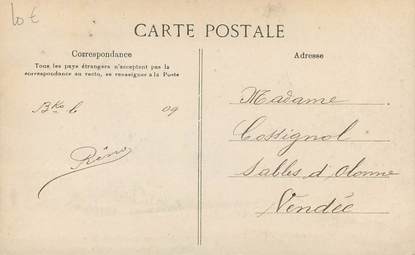 10 €
CARTE POSTALE
Correspondance
Tous les pays étrangers n'acceptent pas la
correspondance au recto, se renseigner à la Poste
09
Adresse
Madame
Cossignol
Sables d'Olonne
Vendée